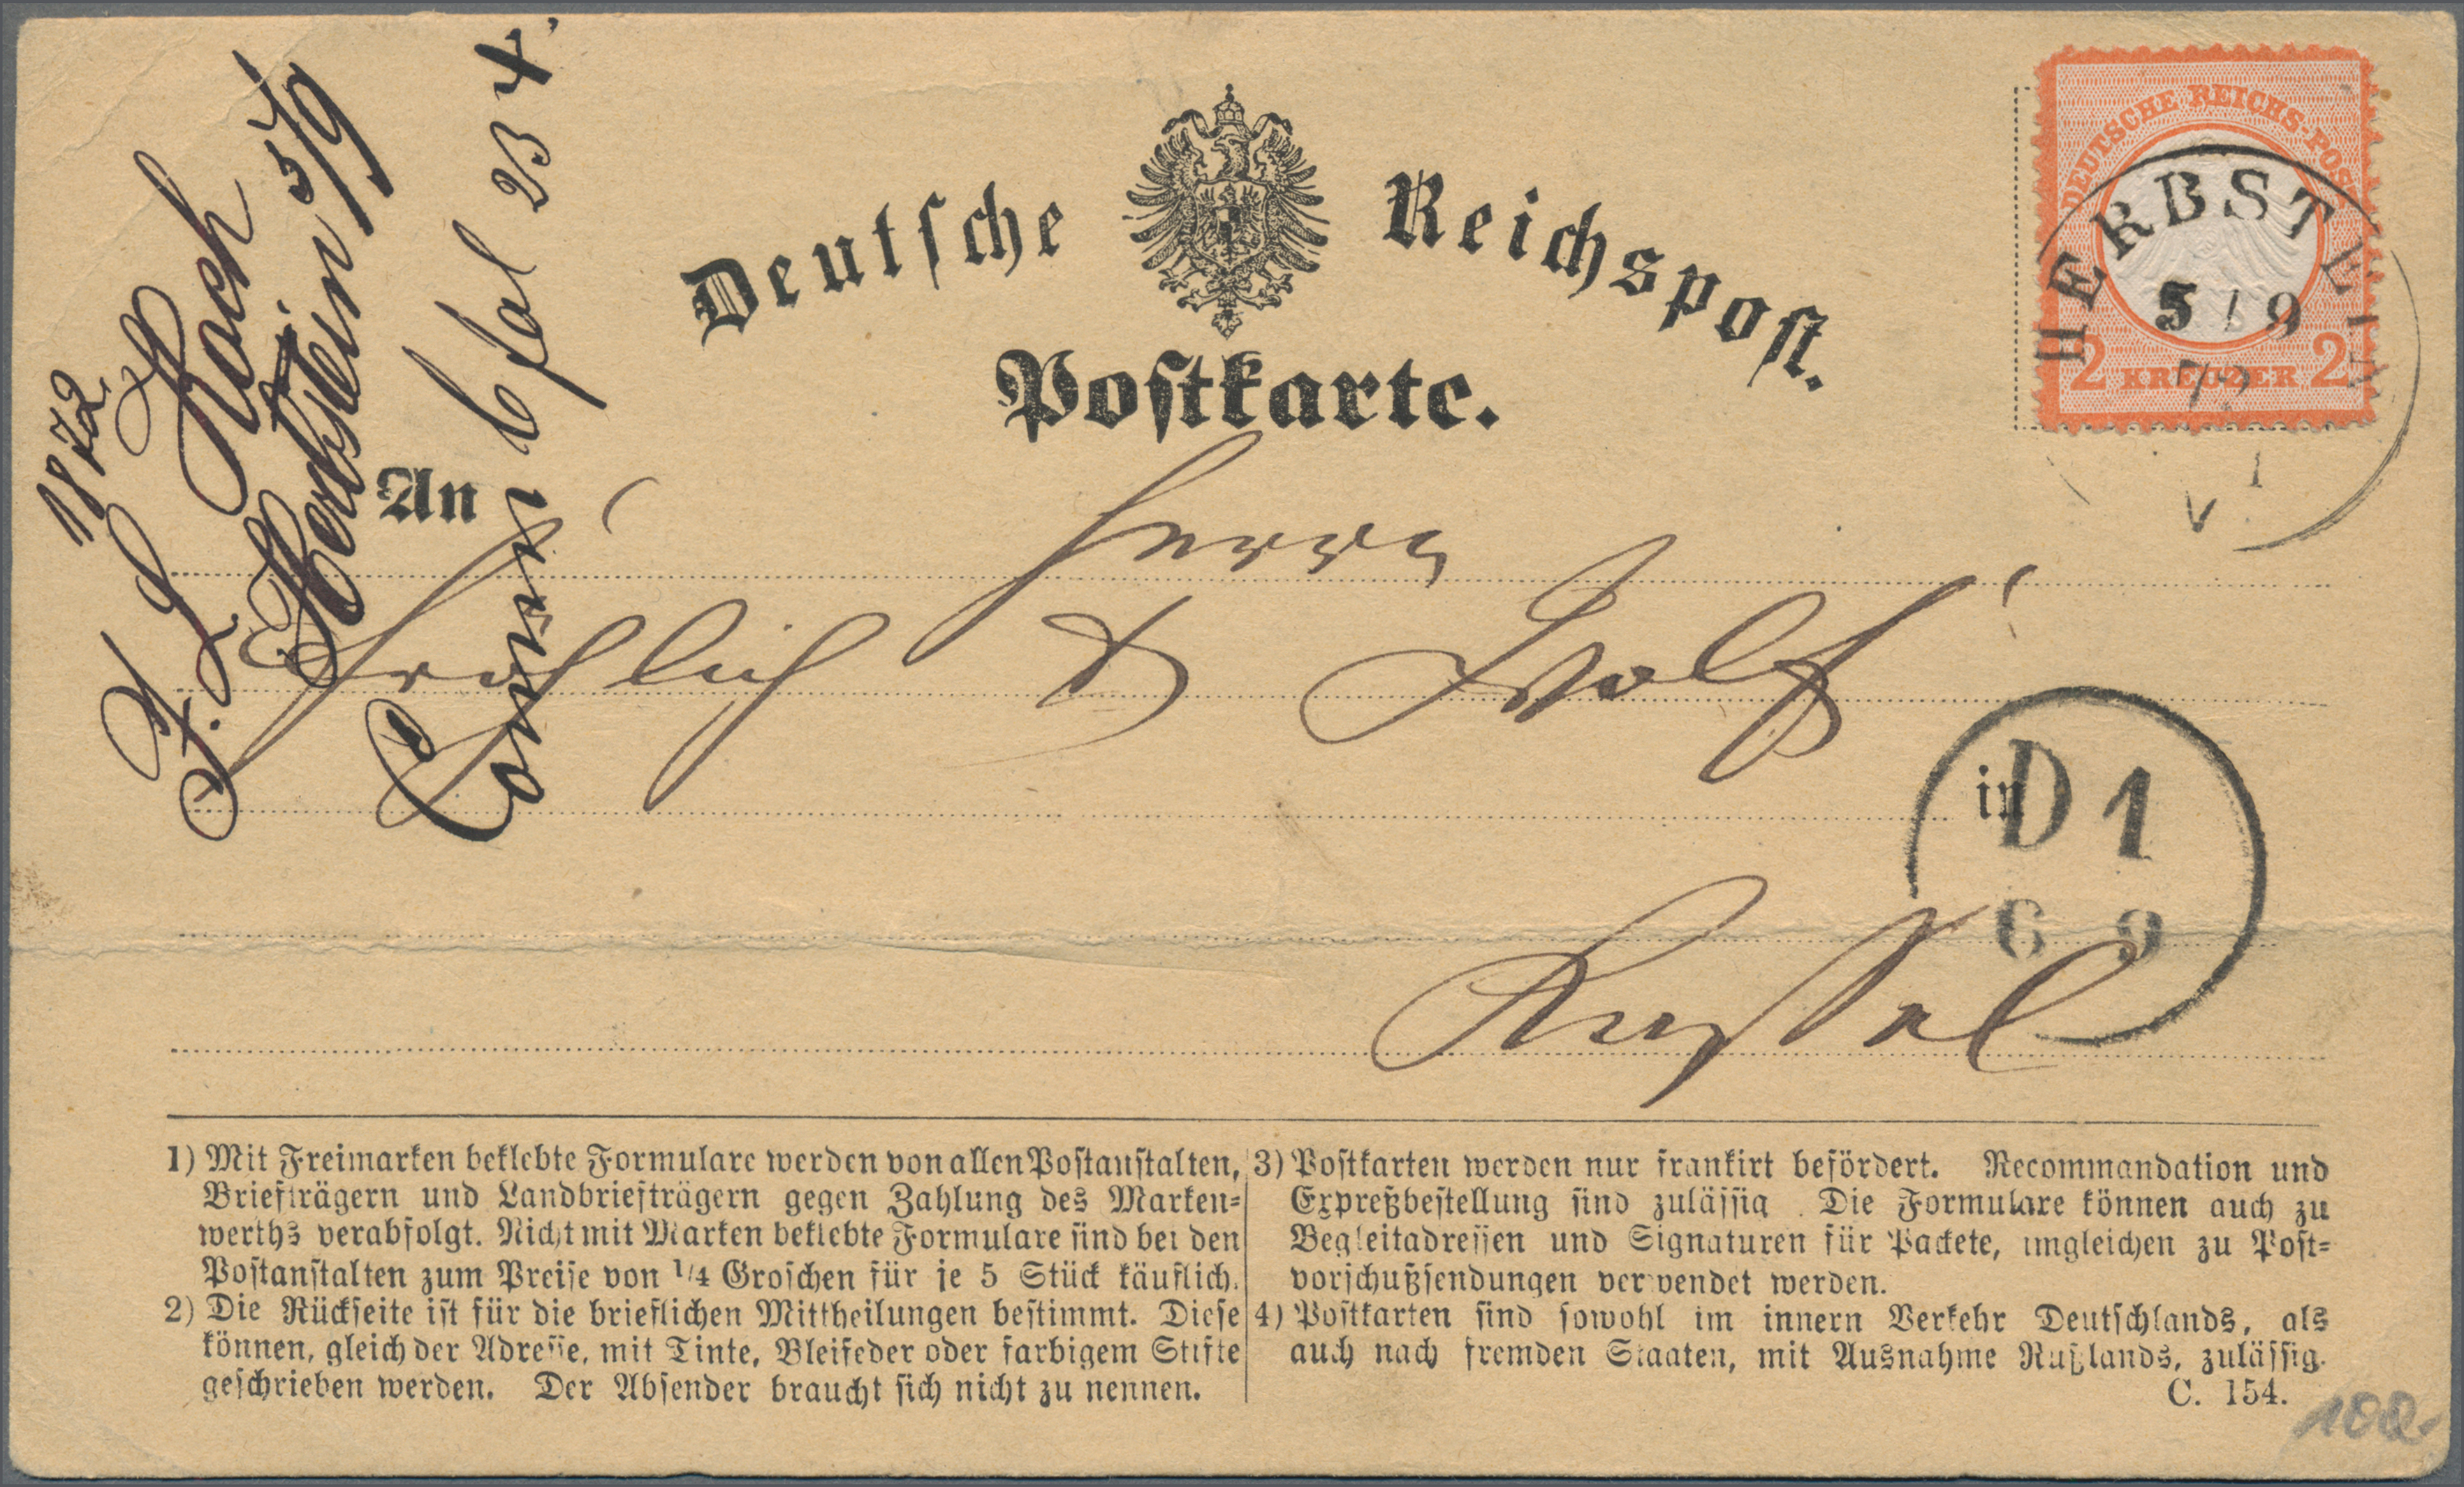 1872.
F. L. Koch
Herbstein 5/9
Deutsche Reichspost.
Postkarte.
DEUTSCHE REICHS-POST
2 KREUZER 2
HERBSTEIN
5 / 9
72
An
Herrn
Frohlich & Wolf
in
D 1
6 9
Kassel
1) Mit Freimarken beklebte Formulare werden von allen Postanstalten,
Briefträgern und Landbriefträgern gegen Zahlung des Marken-
werths verabfolgt. Nicht mit Marken beklebte Formulare sind bei den
Postanstalten zum Preise von 1/4 Groschen für je 5 Stück käuflich.
2) Die Rückseite ist für die brieflichen Mittheilungen bestimmt. Diese
können, gleich der Adresse, mit Tinte, Bleifeder oder farbigem Stifte
geschrieben werden. Der Absender braucht sich nicht zu nennen.
3) Postkarten werden nur frankirt befördert. Recommandation und
Expreßbestellung sind zulässig. Die Formulare können auch zu
Begleitadressen und Signaturen für Packete, imgleichen zu Post-
vorschußsendungen verwendet werden.
4) Postkarten sind sowohl im innern Verkehr Deutschlands, als
auch nach fremden Staaten, mit Ausnahme Rußlands, zulässig.
C. 154.
100.-